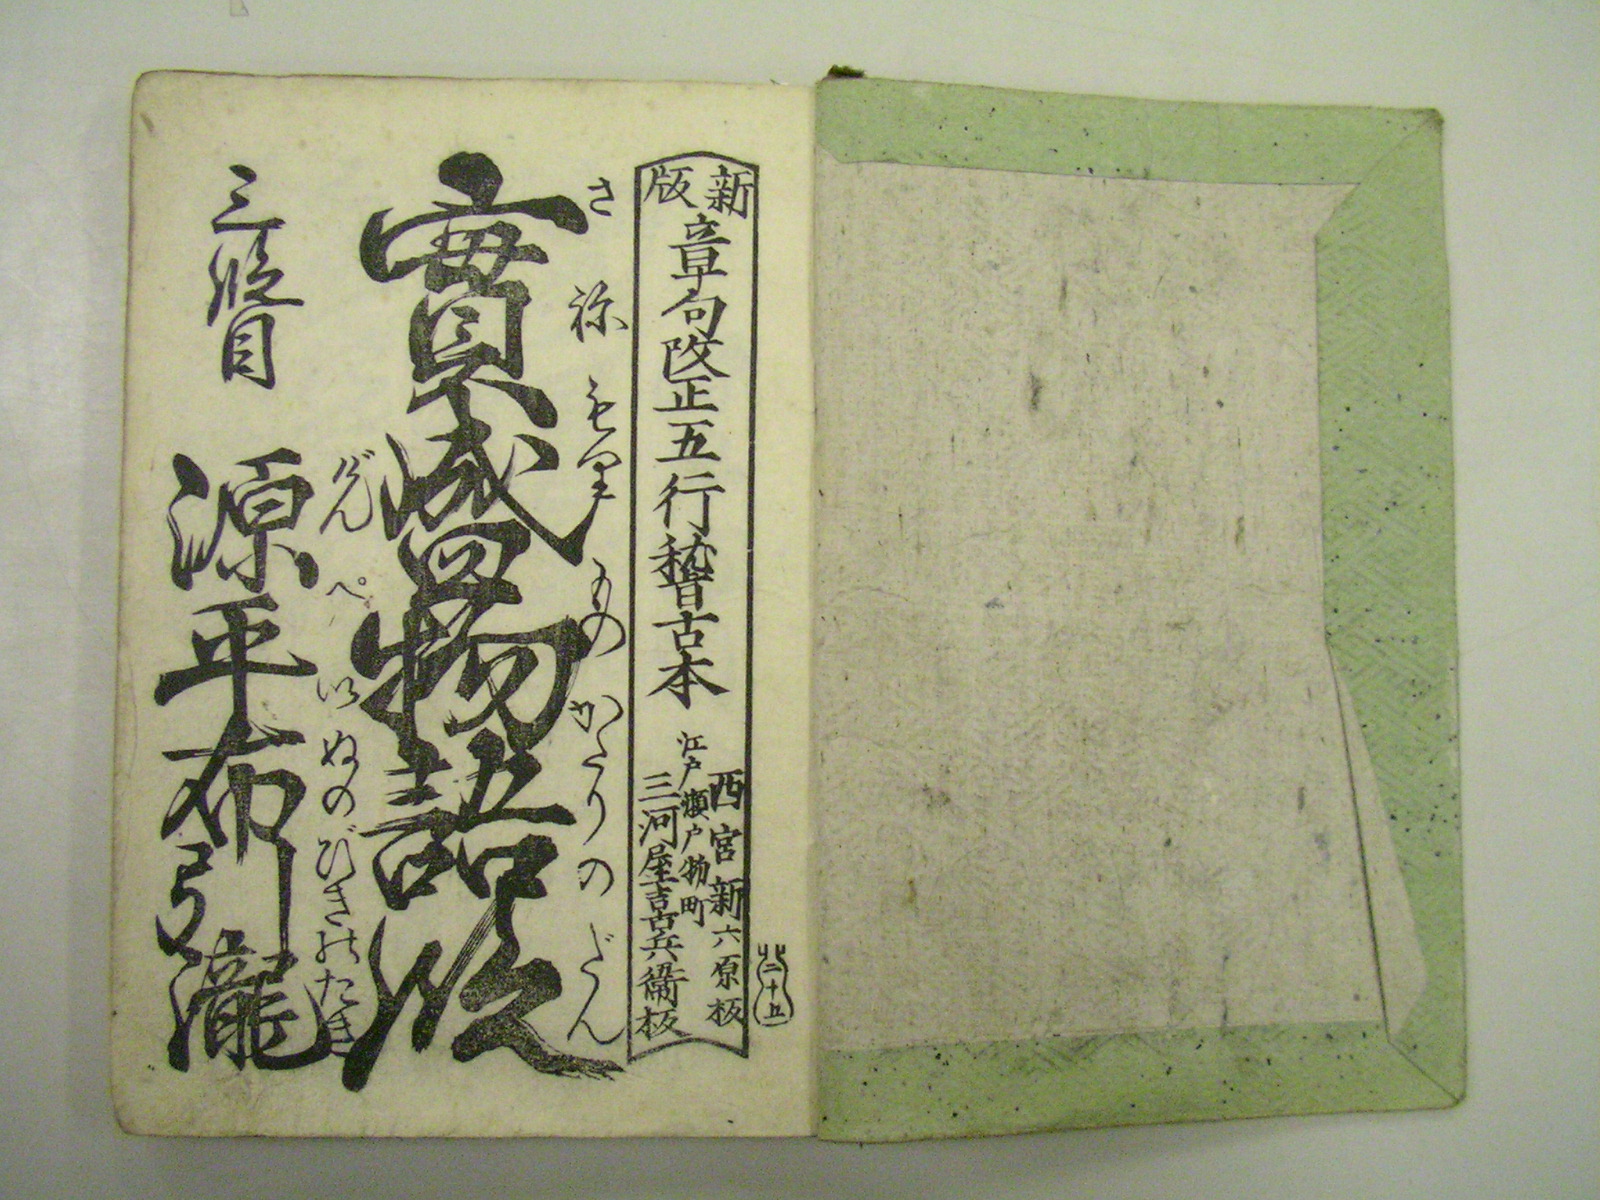 廿二十五
新版 章句改正五行稽古本
西宮新六原板
江戸瀬戸物町
三河屋吉兵衛板
さねもりものがたりのだん
實盛物語段
げんぺいぬのびきのたき
三段目 源平布引瀧